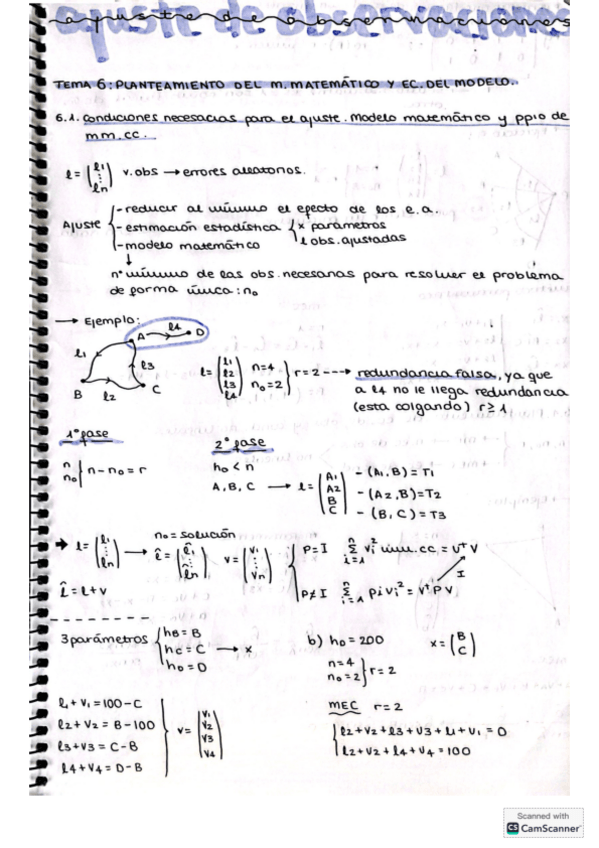 ajuste de observaciones
TEMA 6: PLANTEAMIENTO DEL M. MATEMÁTICO Y EC. DEL MODELO.
6.1. condiciones necesarias para el ajuste. Modelo matemático y ppio de
mm.cc.
l = (l1 ⋮ ln) v.obs → errores aleatorios.
Ajuste { - reducir al mínimo el efecto de los e.a.
- estimación estadística { x parámetros
l obs. ajustadas
- modelo matemático
↓
nº mínimo de las obs. necesarias para resolver el problema
de forma única: n₀
→ Ejemplo:
A l4 D
l1 l3
B l2 C
l = (l1 l2 l3 l4) n=4 n₀=2 } r=2 ---→ redundancia falsa, ya que
a l4 no le llega redundancia
(esta colgando) r≥1
1ª fase
n
n₀ } n - n₀ = r
2ª fase
h₀ < n
A, B, C → l = (A1 A2 B C)
- (A1, B) = T1
- (A2, B) = T2
- (B, C) = T3
→ l = (l1 ⋮ ln) → n₀ = solución
l̂ = (l̂1 ⋮ l̂n) v = (v1 ⋮ vn)
l̂ = l + v
P=I ∑ vi² mín. cc. = vᵗ v
I
P≠I ∑ pi vi² = vᵗ P v
3 parámetros { hB = B
hC = C → x
hD = D
b) h₀ = 200 x = (B C)
n=4
n₀=2 } r = 2
l1 + v1 = 100 - C
l2 + v2 = B - 100
l3 + v3 = C - B
l4 + v4 = D - B
v = (v1 v2 v3 v4)
MEC r = 2
{ l2 + v2 + l3 + v3 + l1 + v1 = 0
l2 + v2 + l4 + v4 = 100
Scanned with
CS CamScanner